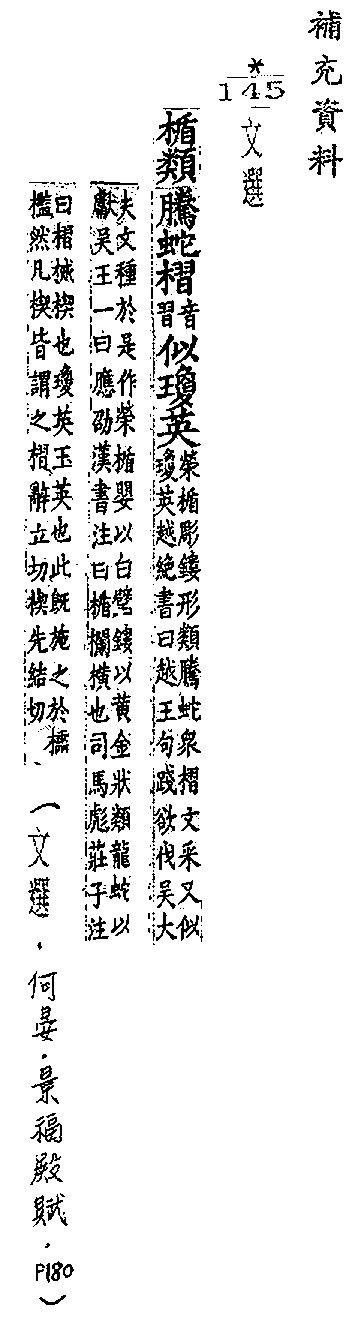 補充資料
*
145
文選
楯類騰蛇槢音習似瓊英榮楯彫鏤形類騰蛇眾槢文采又似
瓊英越絶書曰越王句踐欲伐吳大
夫文種於是作榮楯嬰以白璧鏤以黃金狀類龍蛇以
獻吳王一曰應劭漢書注曰楯欄橫也司馬彪莊子注
曰槢械楔也瓊英玉英也此既施之於櫺
檻然凡楔皆謂之槢辭立切楔先結切
(文選．何晏．景福殿賦．P180)